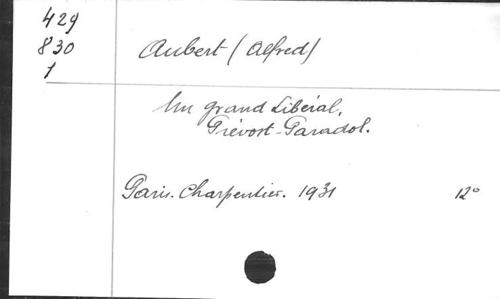 429
830
1
Aubert (Alfred)
Un grand Libéral,
Prévost-Paradol.
Paris. Charpentier. 1931 12°